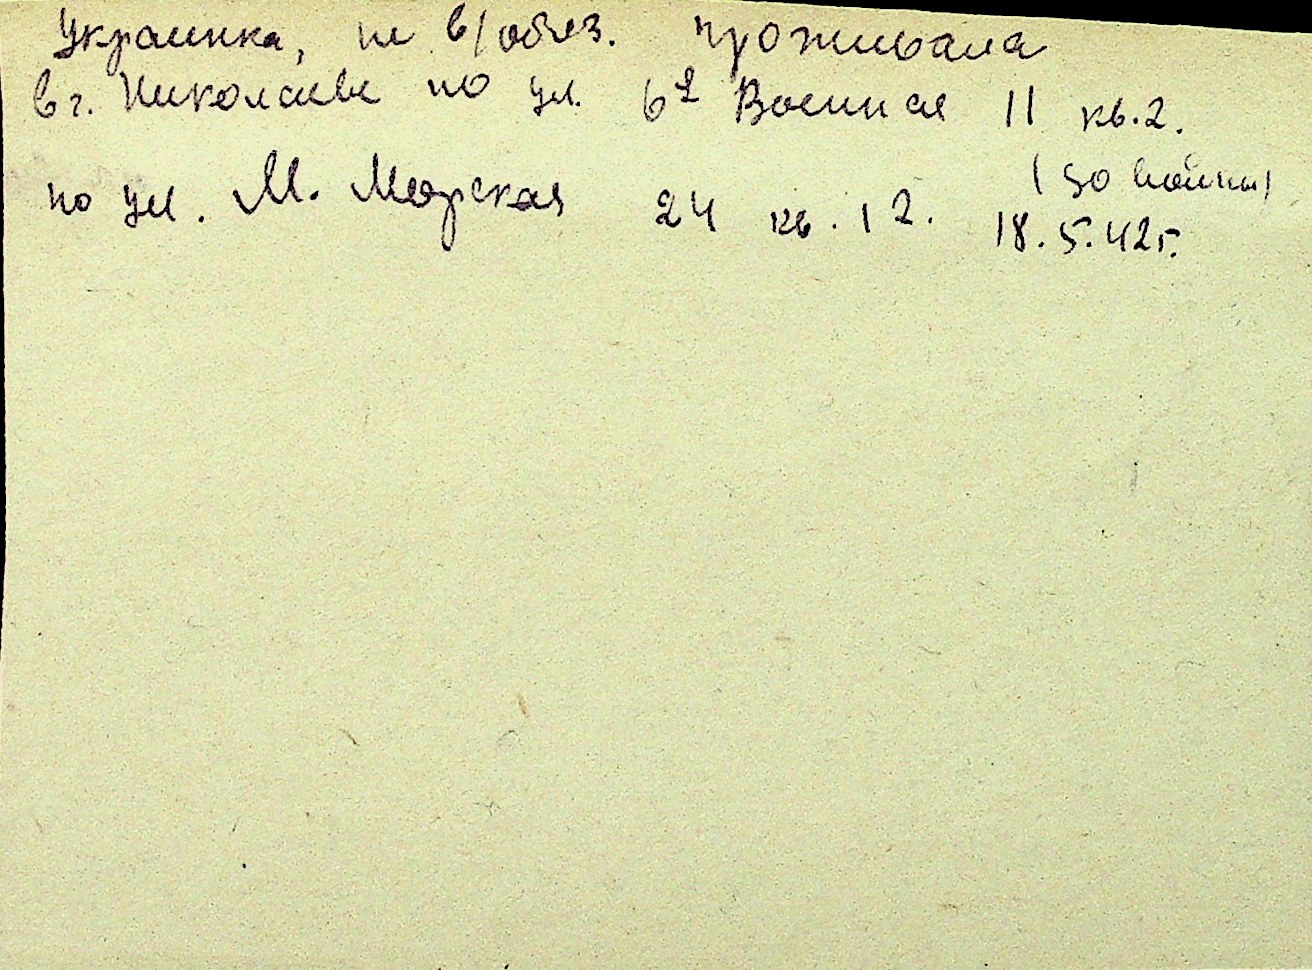 Украинка, не в/обяз. проживала
в г. Николаеве по ул. 6я Военная 11 кв. 2.
(до войны)
по ул. М. Морская 24 кв. 12. 18.5.42г.